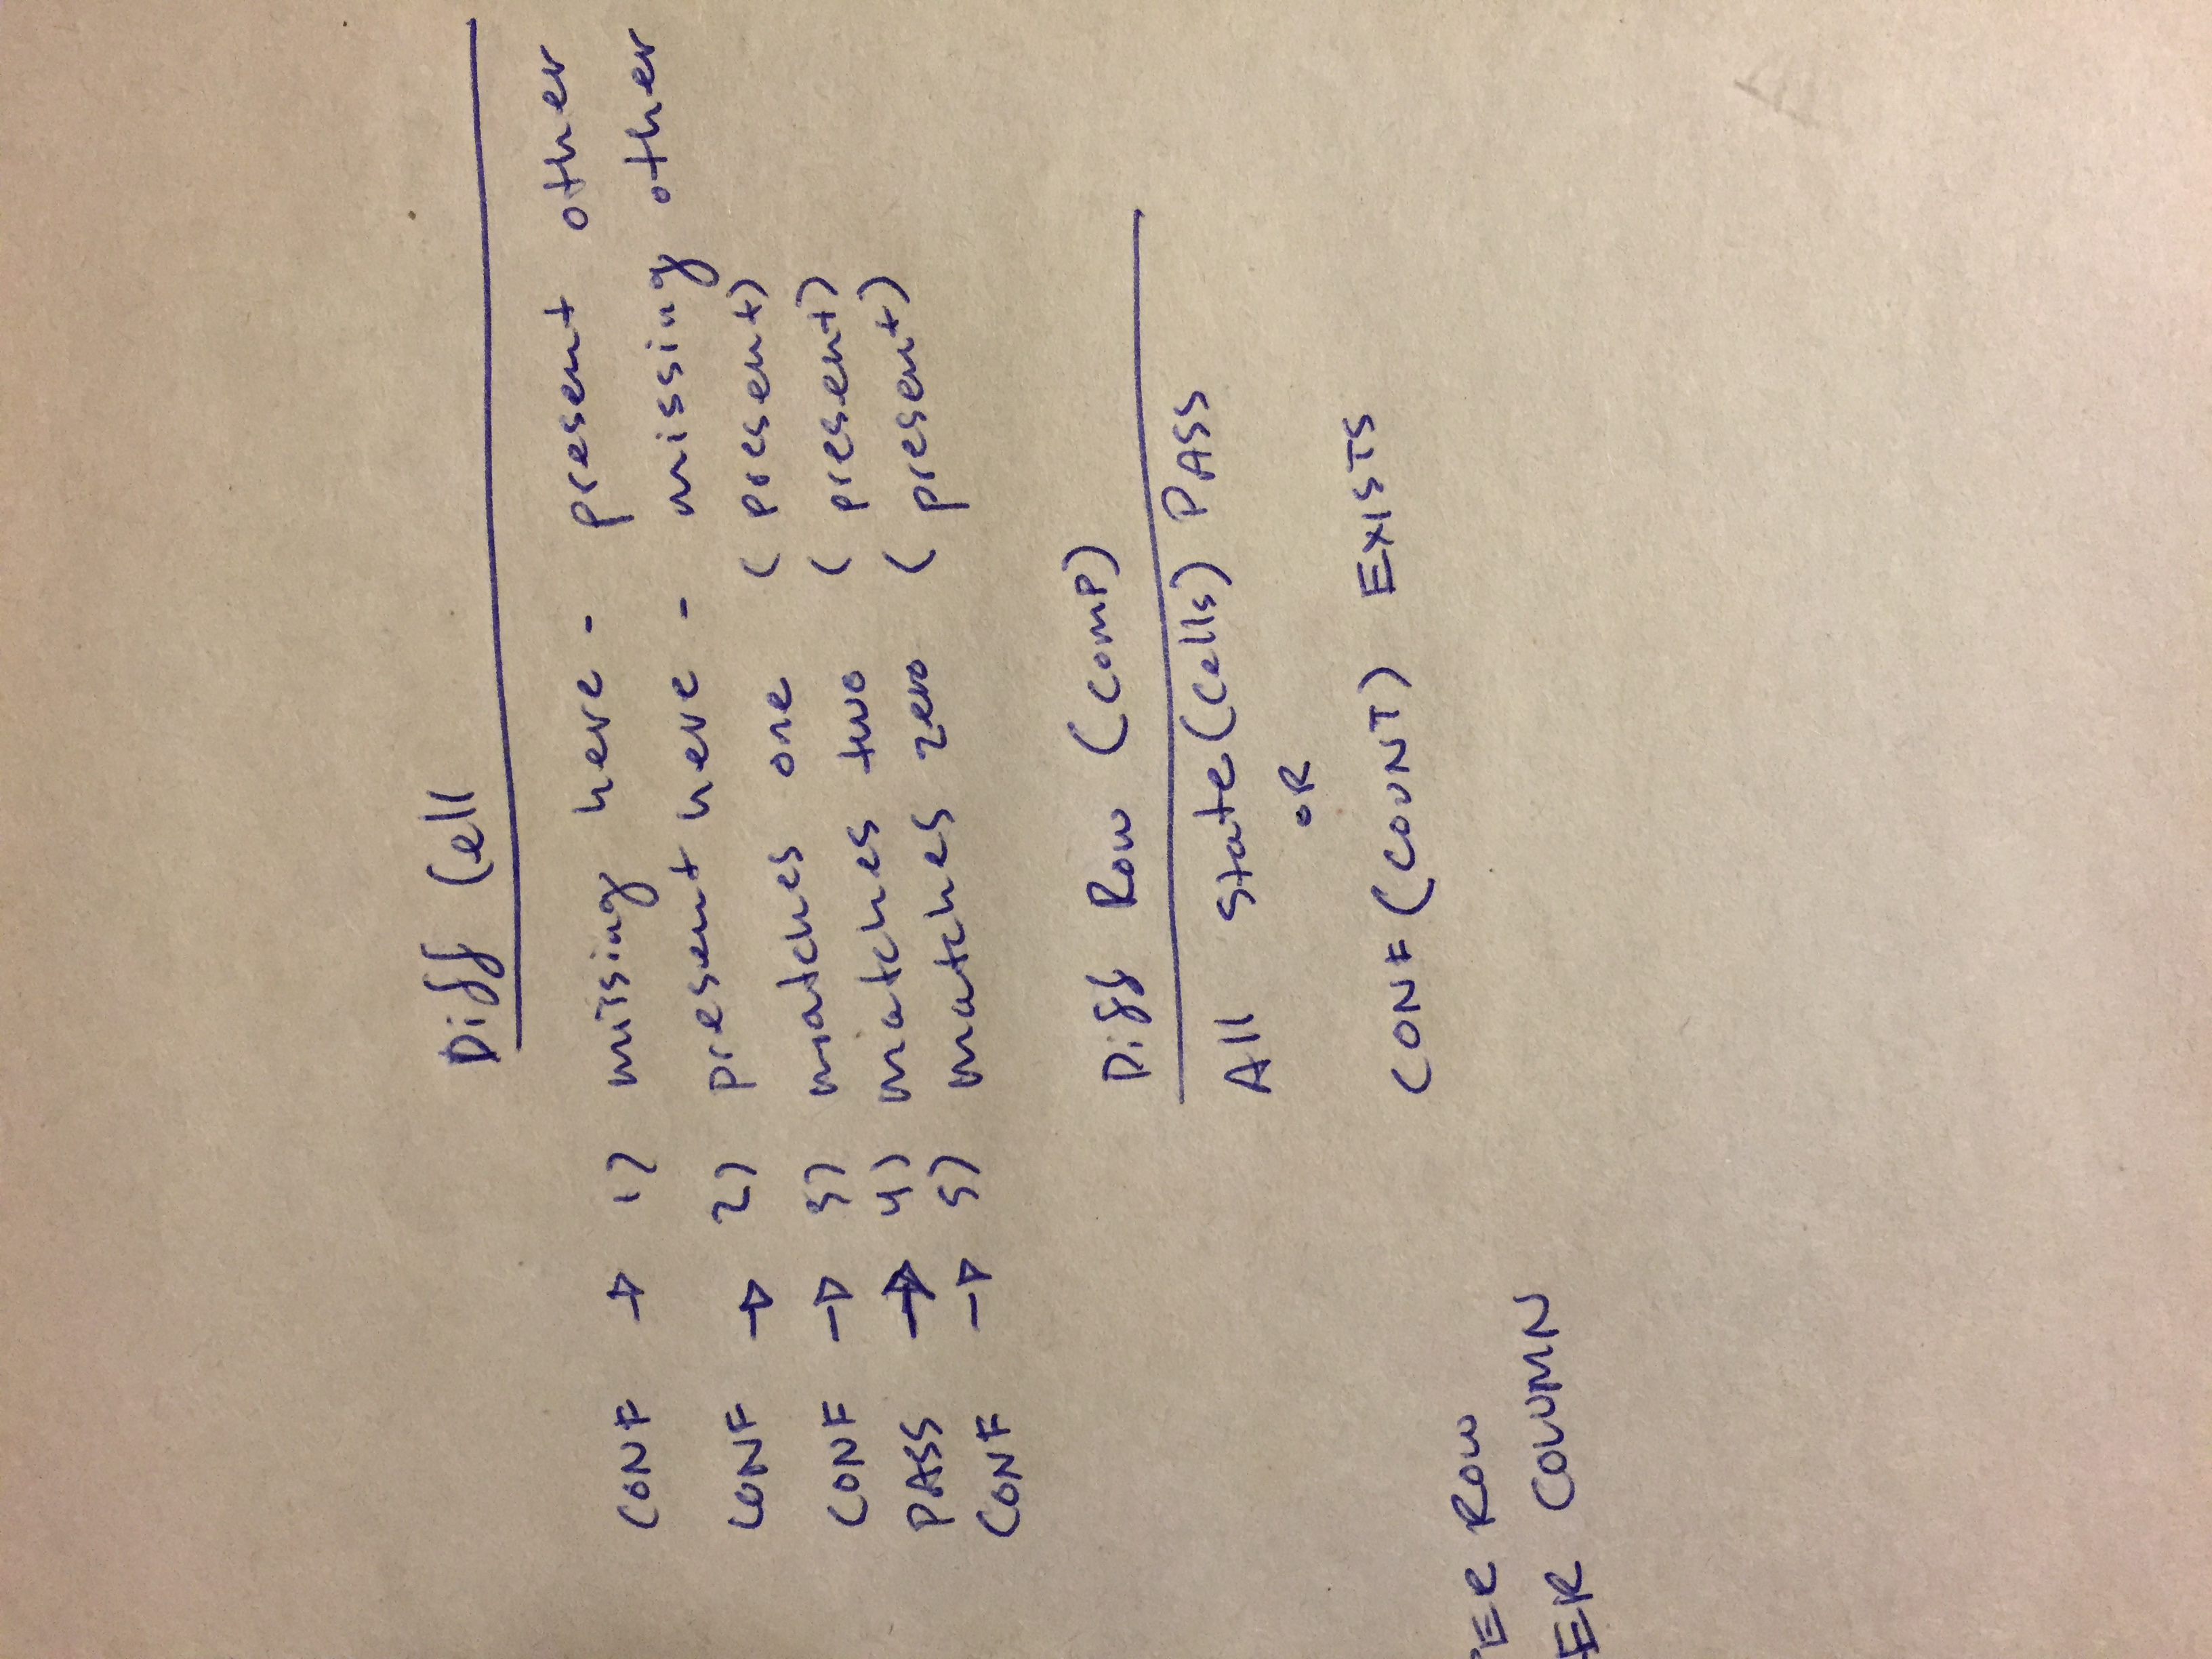 Diff Cell
CONF → 1) missing here - present other
CONF → 2) present here - missing other
CONF → 3) matches one (present)
PASS → 4) matches two (present)
CONF → 5) matches zero (present)
Diff Row (COMP)
All state(cells) PASS
OR
CONF(COUNT) EXISTS
ER ROW
ER COLUMN